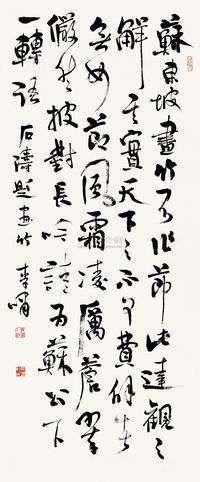 蘇東坡畫竹多不作節此達觀之
解其實天下之不可廢何止
無如節風霜凌厲蒼翠
儼然披對長吟請為蘇公下
一轉語 石濤題畫竹 素嘯